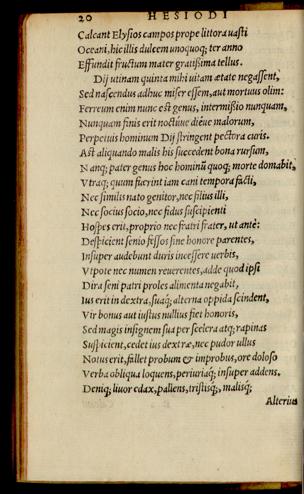 20 HESIODI
Calcant Elysios campos prope littora uasti
Oceani, hic illis dulcem unoquoq; ter anno
Effundit fructum mater gratissima tellus.
Dij utinam quinta mihi uitam ætate negassent,
Sed nascendus adhuc miser essem, aut mortuus olim:
Ferreum enim nunc est genus, intermissio nunquam,
Nunquam finis erit noctúue diéue malorum,
Perpetuis hominum Dij stringent pectora curis.
Ast aliquando malis his succedent bona rursum,
Nanq; pater genus hoc hominũ quoq; morte domabit,
Vtraq; quum fuerint iam cani tempora facti,
Nec similis nato genitor, nec filius illi,
Nec socius socio, nec fidus suscipienti
Hospes erit, proprio nec fratri frater, ut antè:
Despicient senio fessos sine honore parentes,
Insuper audebunt duris incessere uerbis,
Vtpote nec numen reuerentes, adde quod ipsi
Dira seni patri proles alimenta negabit,
Ius erit in dextra, suaq; alterna oppida scindent,
Vir bonus aut iustus nullius fiet honoris,
Sed magis insignem sua per scelera atq; rapinas
Suspicient, cedet ius dextræ, nec pudor ullus
Notus erit, fallet probum & improbus, ore doloso
Verba obliqua loquens, periuriaq; insuper addens.
Deniq; liuor edax, pallens, tristisq;, malisq;
Alterius